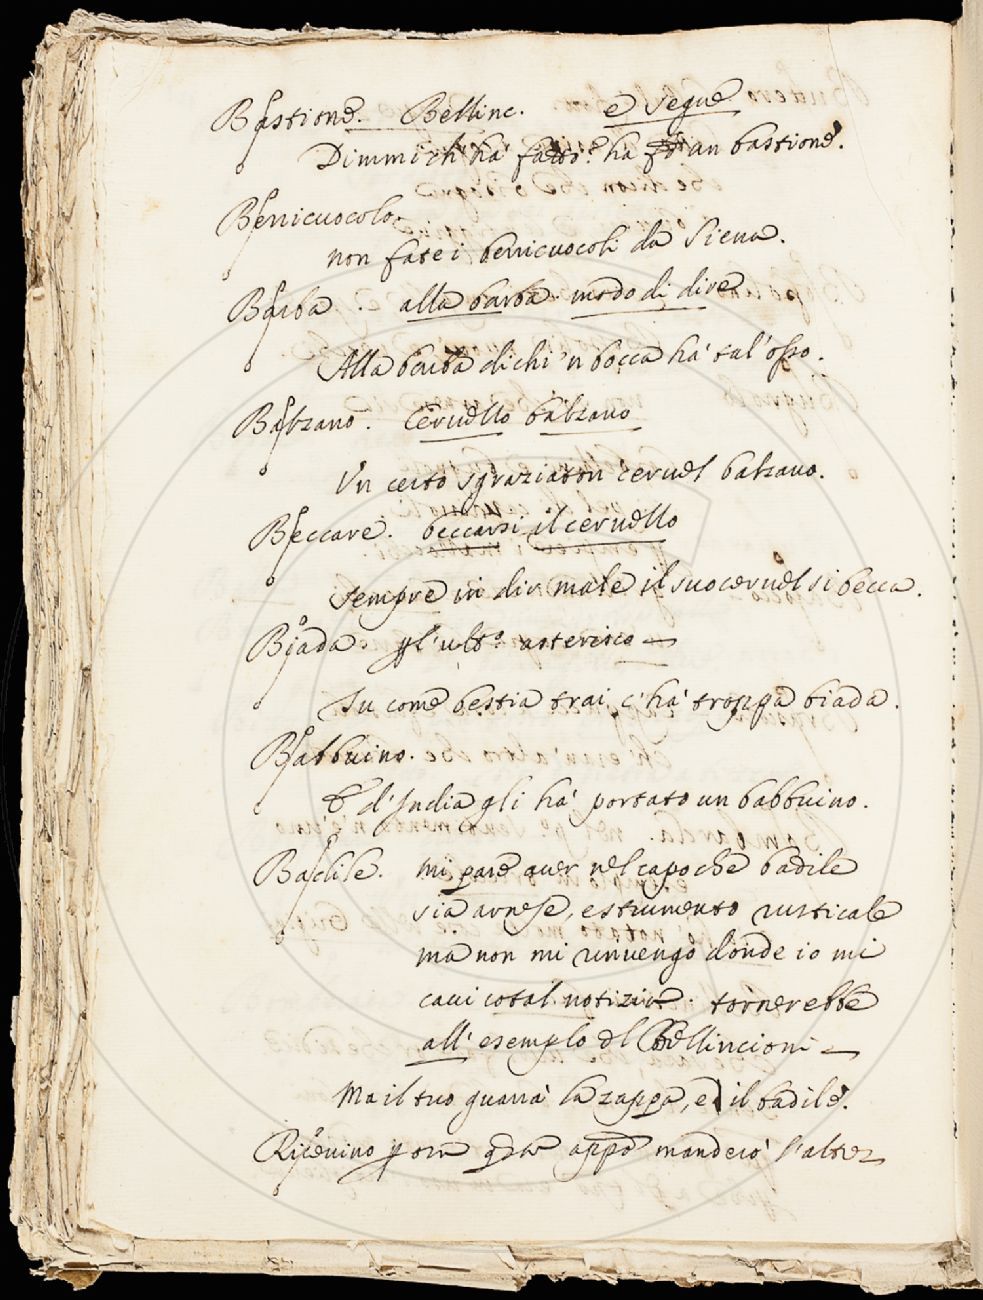 Bastione. Bellinc. e segue
Dimmi ch' ha' fatto? ha fo un bastione.
Berricuocolo.
non fate i berricuocoli da Siena.
Barba. alla barba. modo di dire
Alla barba di chi 'n bocca ha' tal' osso.
Balzano. Cervello balzano
Un certo sgraziaton' cervel balzano.
Beccare. beccarsi il cervello
Sempre in dir male il suo cervel si becca.
Biada. pl'ulto. asterisco —
Tu come bestia trai, c'ha' troppa biada.
Babbuino.
E d'India gli ha' portato un babbuino.
Badile. mi pare aver nel capo che badile
sia arnese, e strumento rusticale
ma non mi rinvengo donde io mi
cavi cotal notizia. tornerebbe
all' esemplo del Bellincioni —
Ma il tuo guarrà la zappa, ed il badile.
Ricevino p ora qsta appo manderò l'altre